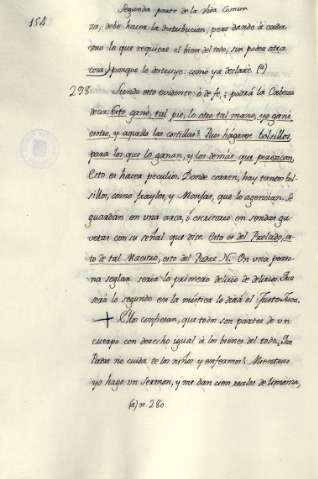 154
Segunda parte de la vida Comun
za, debe hacer la distribucion, pero dando à cada
uno lo que requiere el bien del todo, sin poder otra
cosa, porque lo destruye: como ya declarè. (a)
298. Siendo esto evidente ò de fe, ¿podrà la Cabeza
decir: Esto ganò tal pie, lo otro tal mano, yo ganè
esotro, y aquella las costillas? Pues haganse bolsillos
para los que lo ganan, y los demàs que perezcan.
Esto es hacer peculios. Donde entran, hay tantos bol-
sillos, como frayles, y Monjas, que lo agencian. Se
guardan en una arca, ò escritorio en sendas ga-
vetas con su señal que dice. Esto es del Prelado, es-
to de tal Maestro, esto del Padre N. En una perso-
na seglar seria lo primero delirio de delirios. Que
serà lo segundo en la mistica lo dirà el Justo Juez.
Ellos confiesan, que todos son partes de un
cuerpo con derecho igual à los bienes del todo. Un
Padre no cuida de los niños y enfermos?
yo hago un sermon, y me dan cien reales de limosna,
(a) n. 280